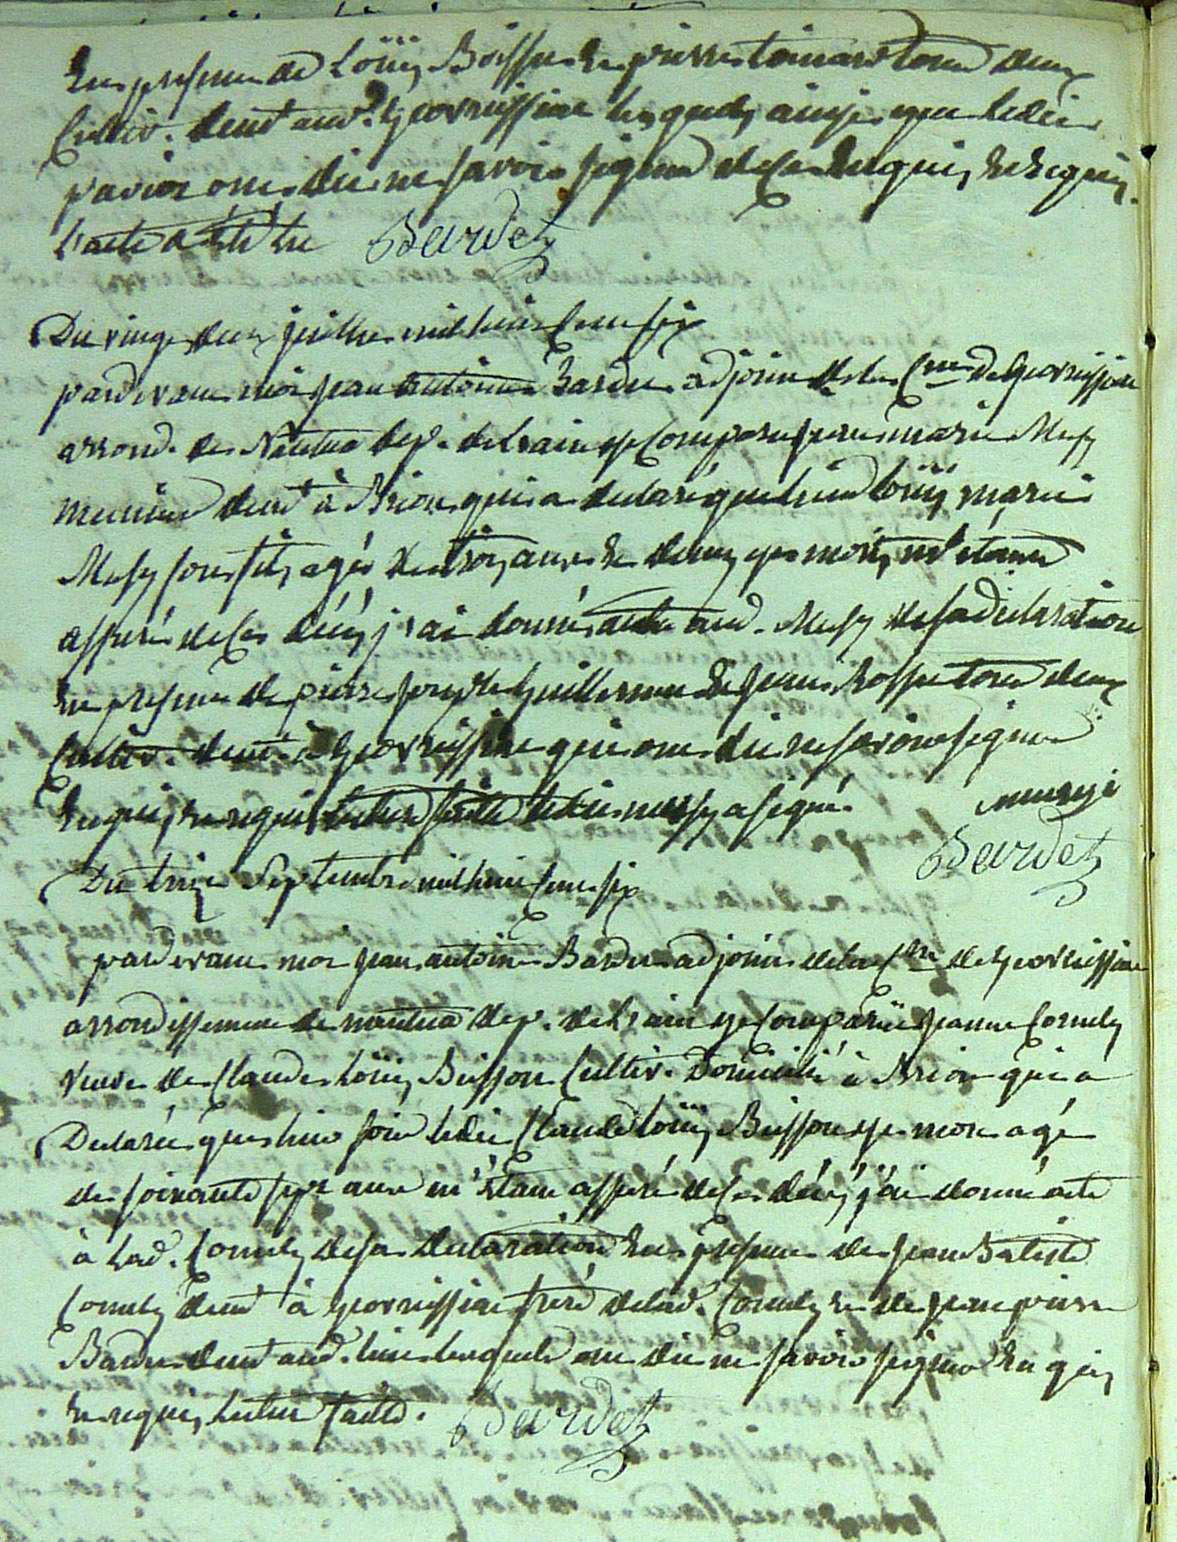 En presence de Loüis Boisson et pierre tournier tous deux
Cultiv. demt aud. Geovreissiat lesquels ainsi que ledit
pavion ont dit ne savoir signer de ce enquis et requis
l'acte a été lu Bardet
Du vingt deux juillet mil huit cent six
pardevant moi jean antoine Bardet adjoint de la Cne de Geovreissiat
arrond. de Nantua dep. de l'ain est comparu jean marie Messy
meunier demt à Brion qui a declaré que hier Loüis marie
Messy son fils agé de trois ans et demy est mort, m'étant
assuré de ce décès j'ai donné acte aud. Messy de sa declaration
en presence de pierre joseph Guillermin et jean Rosset tous deux
Cultiv. demt à Geovreissiat qui ont dit ne savoir signer
enquis et requis lecture faite ledit messy a signé
messi
Bardet
Du treize Septembre mil huit cent six
pardevant moi jean antoine Bardet adjoint de la Cne de Geovreissiat
arrondissement de nantua dep. de l'ain est comparüe jeanne Cornely
veuve de Claude Loüis Buisson Cultiv. Domicilié à Brion qui a
Declaré que hier soir ledit Claude Loüis Buisson est mort agé
de soixante sept ans m'étant assuré de ce décès j'ai donné acte
à lad. Cornely de sa declaration en presence de jean Batiste
Cornely demt à Geovreissiat frere de lad. Cornely et de jean pierre
Bardet demt aud. lieu lesquels ont dit ne savoir signer enquis
et requis lecture faite. Bardet